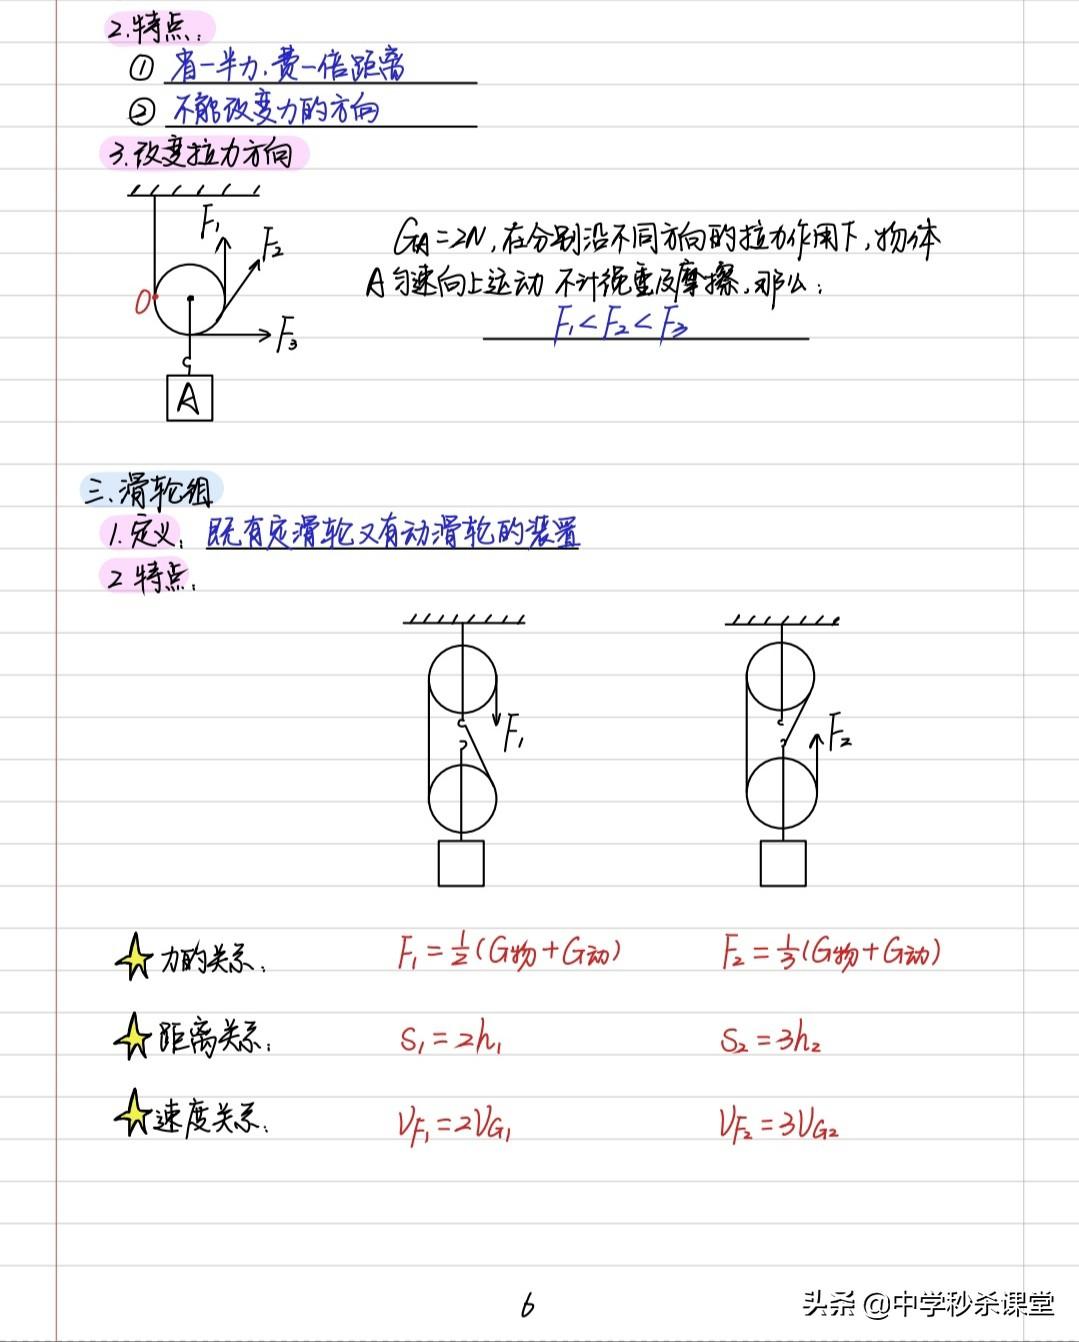 2.特点:
① 省一半力.费一倍距离
② 不能改变力的方向
3.改变拉力方向
F₁
F₂
O
F₃
A
G_A=2N,在分别沿不同方向的拉力作用下,物体
A匀速向上运动 不计绳重及摩擦,那么:
F₁<F₂<F₃
三.滑轮组
1.定义: 既有定滑轮又有动滑轮的装置
2 特点:
F₁
F₂
力的关系: F₁=½(G物+G动) F₂=⅓(G物+G动)
距离关系: S₁=2h₁ S₂=3h₂
速度关系: V_F₁=2V_G₁ V_F₂=3V_G₂
6
头条 @中学秒杀课堂